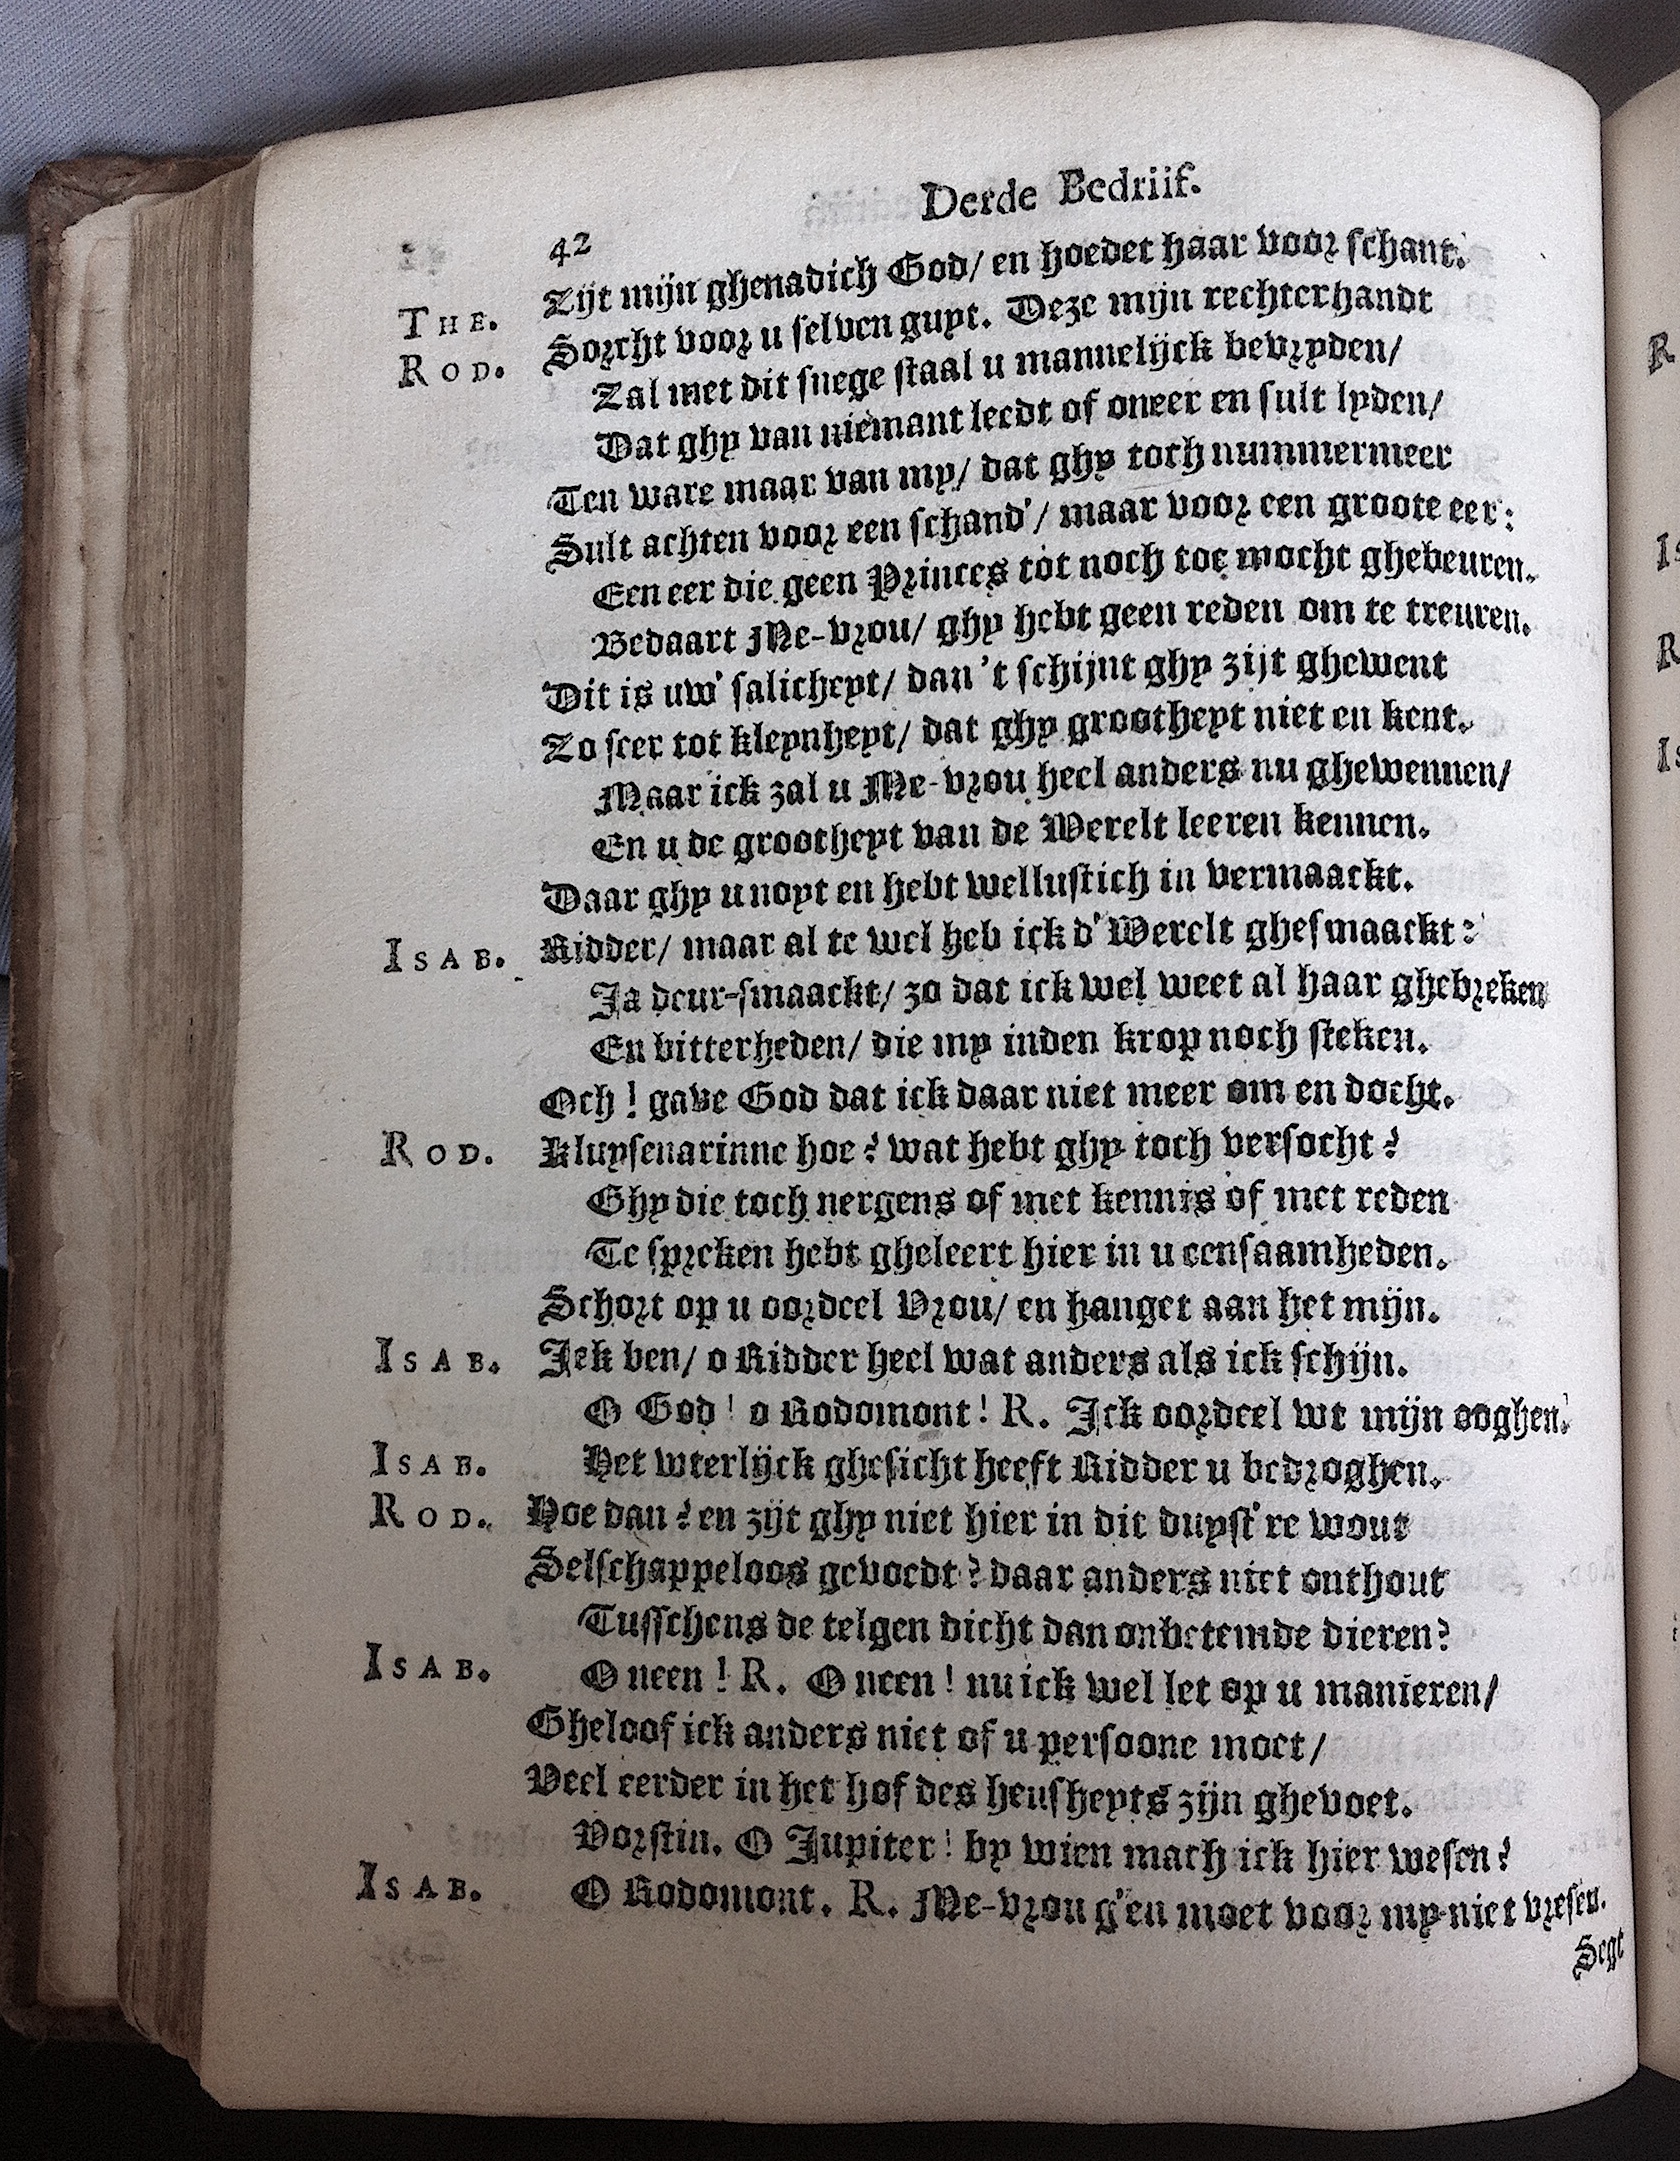 Derde Bedriif.
42
THE. Zijt mijn ghenadich God/ en hoedet haar voor schant.
ROD. Sorcht voor u selven guyt. Deze mijn rechterhandt
Zal met dit snege staal u mannelijck bevryden/
Dat ghy van niemant leedt of oneer en sult lyden/
Ten ware maar van my/ dat ghy toch nummermeer
Sult achten voor een schand'/ maar voor een groote eer:
Een eer die geen Princes tot noch toe mocht ghebeuren.
Bedaart Me-vrou/ ghy hebt geen reden om te treuren.
Dit is uw' salicheyt/ dan 't schijnt ghy zijt ghewent
Zo seer tot kleynheyt/ dat ghy grootheyt niet en kent.
Maar ick zal u Me-vrou heel anders nu ghewennen/
En u de grootheyt van de Werelt leeren kennen.
Daar ghy u noyt en hebt wellustich in vermaackt.
ISAB. Ridder/ maar al te wel heb ick d' Werelt ghesmaackt:
Ja deur-smaackt/ zo dat ick wel weet al haar ghebreken
En bitterheden/ die my inden krop noch steken.
Och! gave God dat ick daar niet meer om en docht.
ROD. Kluysenarinne hoe? wat hebt ghy toch versocht?
Ghy die toch nergens of met kennis of met reden
Te spreken hebt gheleert hier in u eensaamheden.
Schort op u oordeel Vrou/ en hanget aan het mijn.
ISAB. Ick ben/ o Ridder heel wat anders als ick schijn.
O God! o Rodomont! R. Ick oordeel wt mijn ooghen.
ISAB. Het wterlijck ghesicht heeft Ridder u bedroghen.
ROD. Hoe dan? en zijt ghy niet hier in dit duyst're wout
Selschappeloos gevoedt? daar anders niet onthout
Tusschens de telgen dicht dan onbetemde dieren?
ISAB. O neen! R. O neen! nu ick wel let op u manieren/
Gheloof ick anders niet of u persoone moet/
Veel eerder in het hof des heusheyts zijn ghevoet.
Vorstin. O Jupiter! by wien mach ick hier wesen?
ISAB. O Rodomont. R. Me-vrou g'en moet voor my niet vresen.
Segt